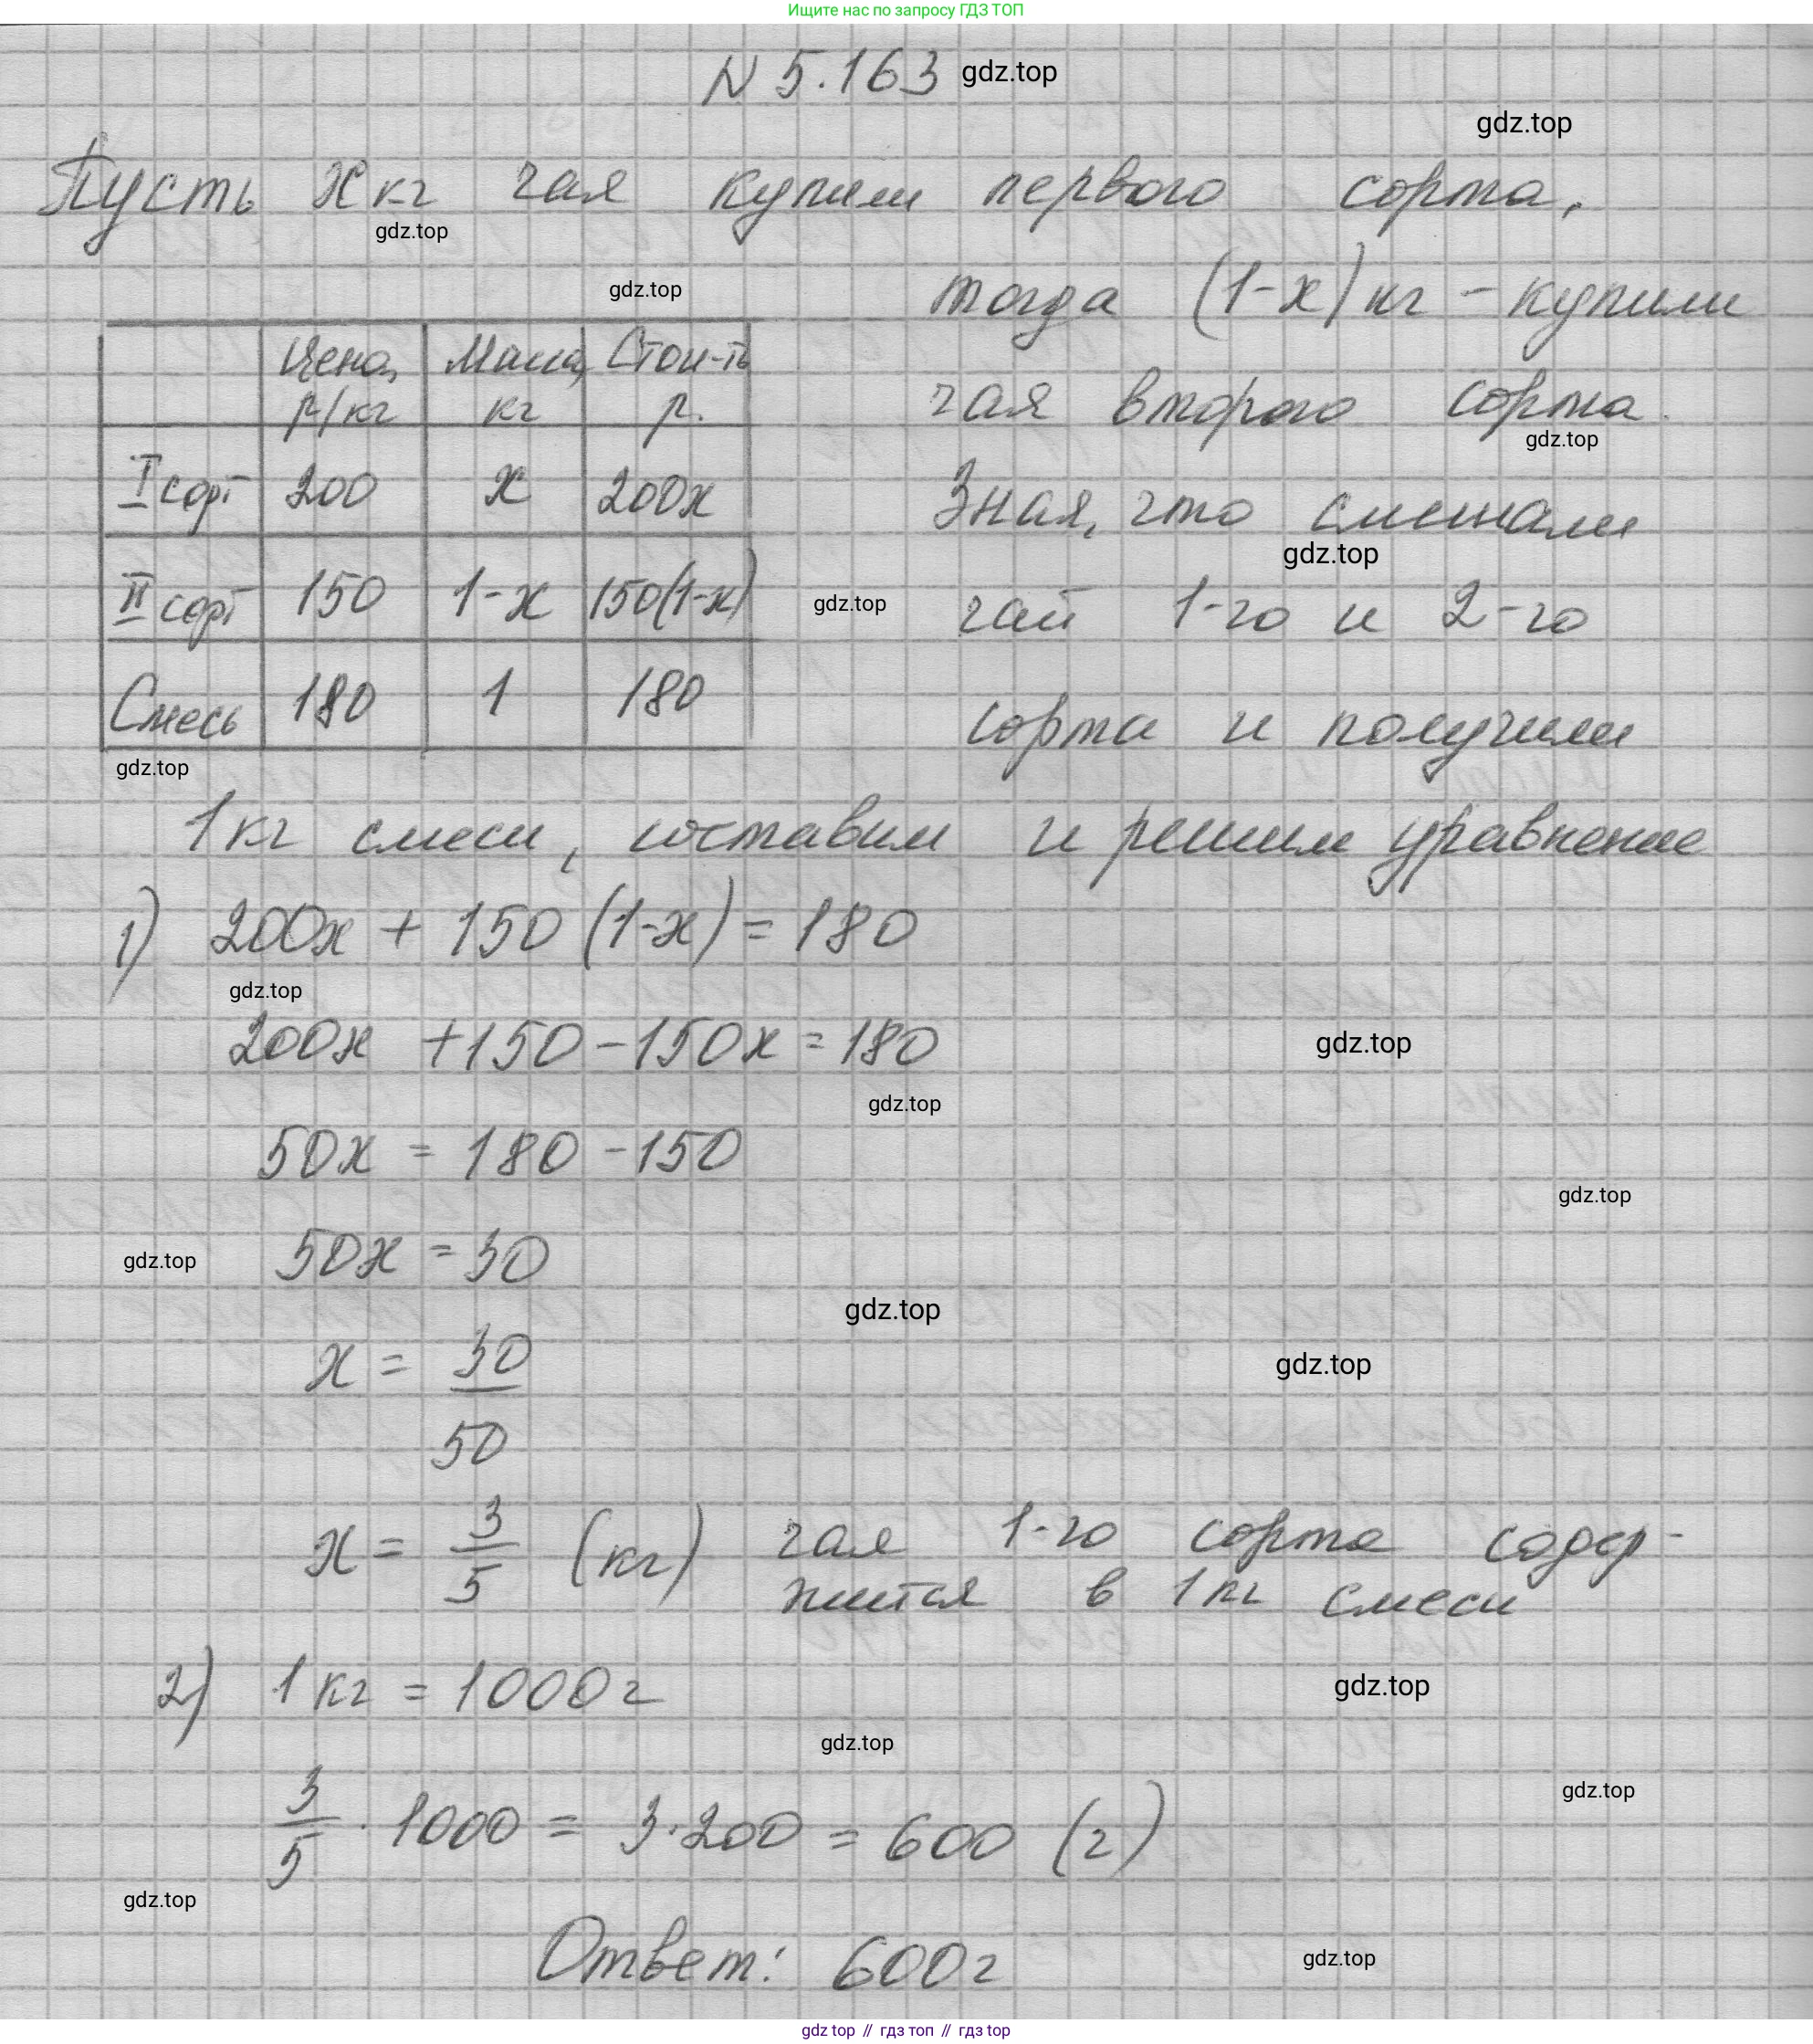 Ищите нас по запросу ГДЗ ТОП
N 5.163 gdz.top
gdz.top
Пусть x кг чая купили первого сорта,
gdz.top
gdz.top
тогда (1-x) кг - купили
чая второго сорта.
gdz.top
Зная, что смешали
gdz.top
чай 1-го и 2-го
gdz.top
сорта и получили
Цена, р/кг | Масса, кг | Стои-ть р.
I сорт | 200 | x | 200x
II сорт | 150 | 1-x | 150(1-x)
Смесь | 180 | 1 | 180
gdz.top
1 кг смеси, составим и решим уравнение
1) 200x + 150 (1-x) = 180
gdz.top
200x +150 -150x = 180
gdz.top
gdz.top
50x = 180 -150
gdz.top
50x = 30
gdz.top
gdz.top
x = 30/50
gdz.top
x = 3/5 (кг) чая 1-го сорта содер-
жится в 1 кг смеси
2) 1 кг = 1000 г
gdz.top
gdz.top
gdz.top
3/5 · 1000 = 3·200 = 600 (г)
gdz.top
Ответ: 600 г
gdz.top
gdz top // гдз топ // гдз top